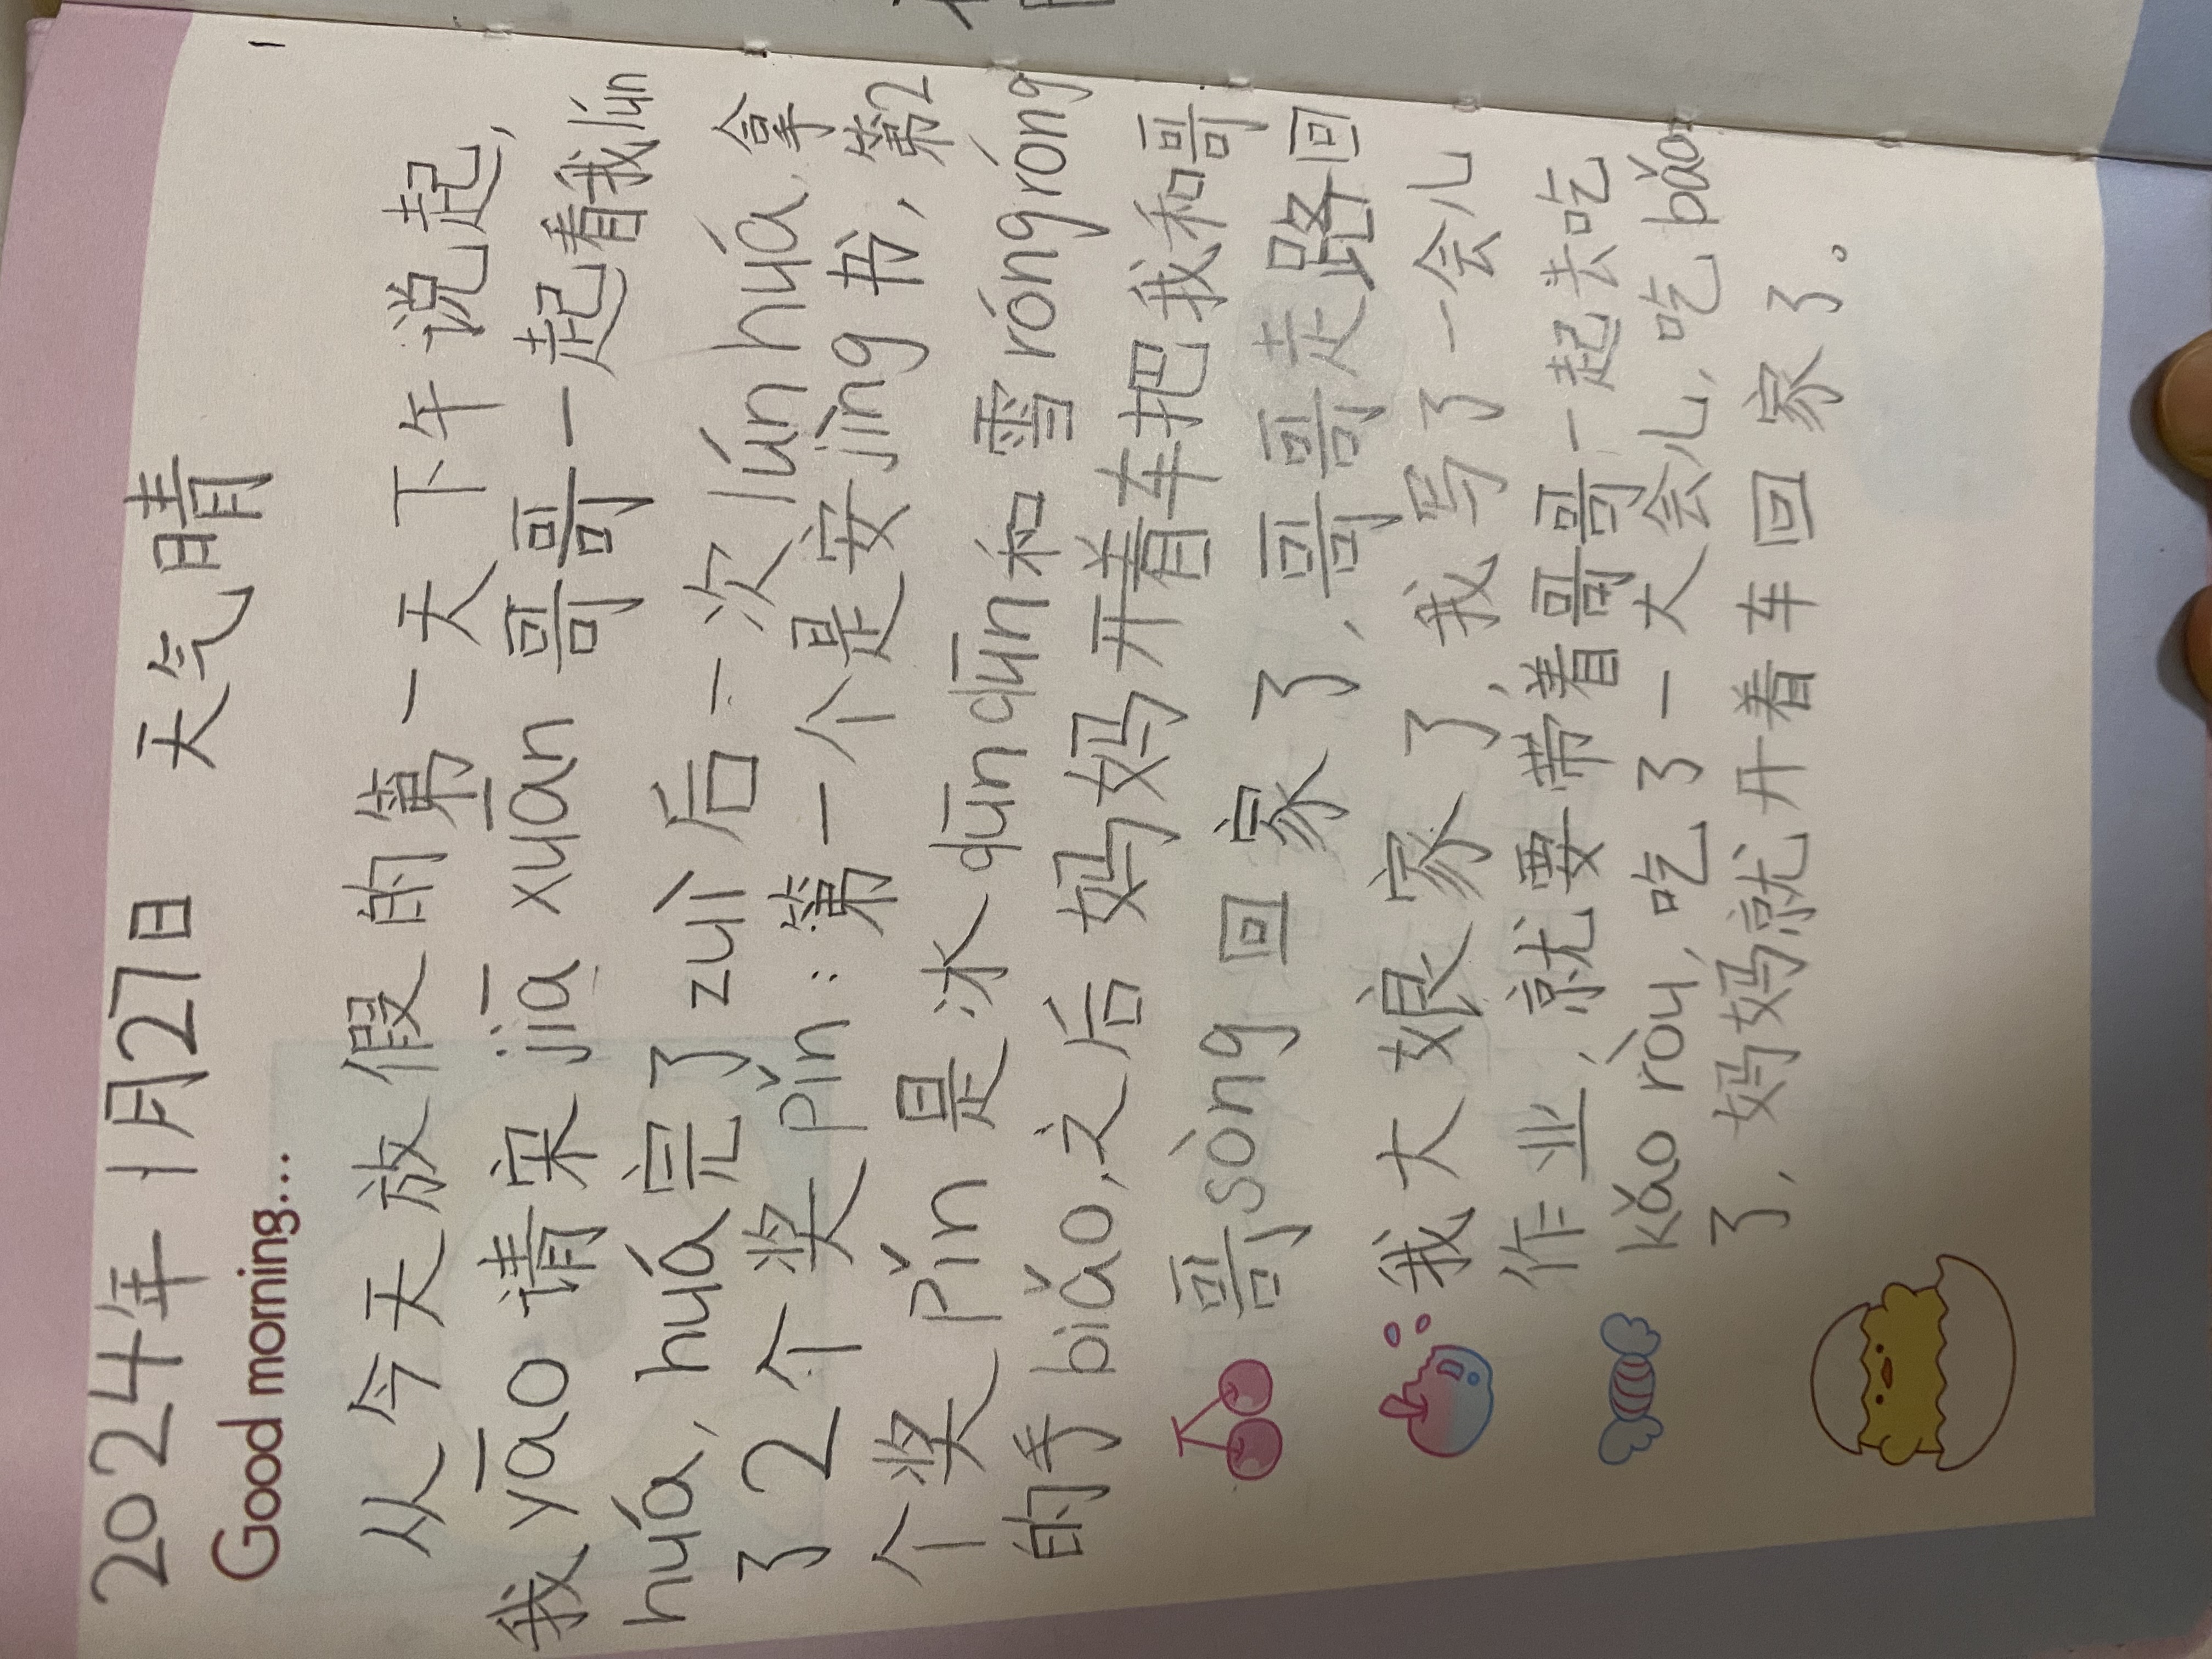 2024年1月27日 天气晴
Good morning...
从今天放假的第一天下午说起,
我yāo请宋jiā xuān哥哥一起看我lún
huá, huá完了zuì后一次lún huá, 拿
了2个奖pǐn:第一个是安jìng书, 第2
个奖pǐn是冰dūn dūn和雪róng róng
的手biǎo,之后妈妈开着车把我和哥
哥sòng回家了, 哥哥走路回
我大娘家了, 我写了一会儿
作业, 就要带着哥哥一起去吃
kǎo ròu, 吃了一大会儿, 吃bǎo
了, 妈妈就开着车回家了。